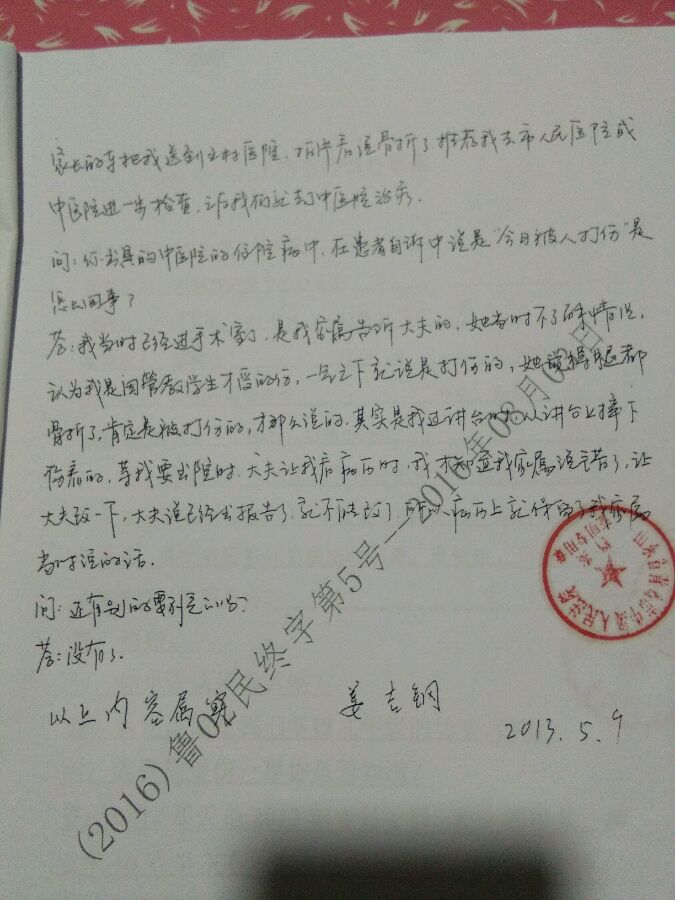 家长的车把我送到文村医院,拍片看说骨折了推荐我去市人民医院或
中医院进一步检查,之后我们就去了中医院治疗.
问:你出具的中医院的住院病中,在患者自诉中说是"今日被人打伤"是
怎么回事?
答:我当时已经进手术室了,是我家属告诉大夫的,她当时不了解情况,
认为我是因管教学生才受的伤,一急之下就说是打伤的,她觉得都
骨折了,肯定是被打伤的,才那么说的,其实是我迈讲台时从讲台上摔下
伤着的,等我要出院时,大夫让我看病历时,我才知道我家属说错了,让
大夫改一下,大夫说已经出报告了,就不能改了.所以病历上就保留了我家属
当时说的话.
问:还有别的要补充的吗?
答:没有了.
以上内容属实 姜吉钢 2013.5.9
(2016)鲁02民终字第5号--2016年08月02日
山东省青岛市中级人民法院